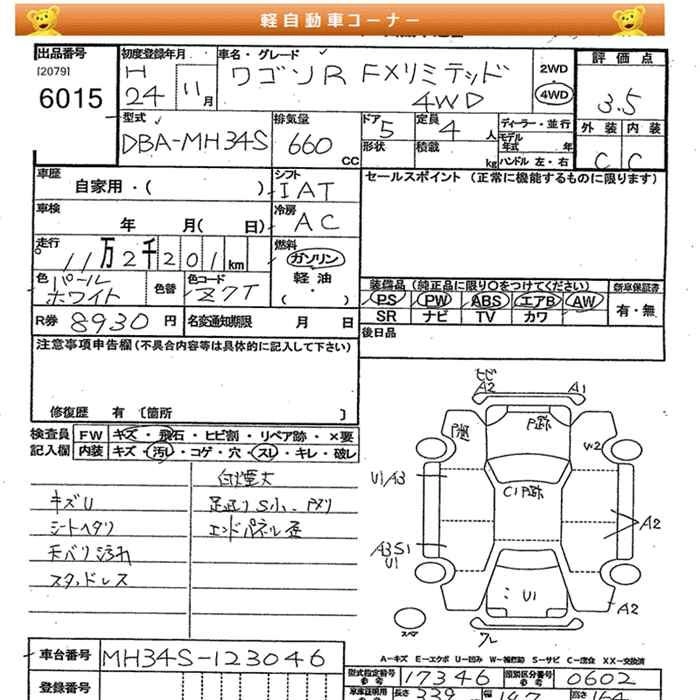 軽自動車コーナー
出品番号 初度登録年月 車名・グレード 評価点
[2079] H ワゴンR FXリミテッド 2WD
6015 24 11月 4WD 4WD 3.5
型式 排気量 ドア 定員 ディーラー・並行 外装 内装
DBA-MH34S 660 CC 5 4人 モデル年式 年 C C
形状 積載 kg ハンドル 左・右
車歴 シフト セールスポイント (正常に機能するものに限ります)
自家用・( ) IAT
車検 冷房
年 月( 日) AC
走行 燃料
11万2千201km ガソリン
色 パールホワイト 色替 色コード Z7T 軽油 装備品 (純正品に限り○をつけてください) 新車保証書
( ・ ) PS PW ABS エアB AW 有・無
R券 8930円 名変通知期限 月 日 SR ナビ TV カワ
注意事項申告欄 (不具合内容等は具体的に記入して下さい) 後日品
修復歴 有 〔箇所 〕
検査員 FW キズ・飛石・ヒビ割・リペア跡・×要
記入欄 内装 キズ・汚れ・コゲ・穴・スレ・キレ・破レ
キズU
シートヘタリ
天バリ汚れ
スタッドレス
足廻りS小、Pメリ
エンドパネル歪
ヒビ
A2 A1
P跡
W2
C1P跡
U1/A3
A2
A3S1
U1
U1
A2
A-キズ E-エクボ U-凹み W-補修跡 S-サビ C-腐食 XX-交換済
車台番号 MH34S-123046
型式指定番号 参考 17346 類別区分番号 参考 0602
登録番号 長さ 339 幅 147 高さ 164